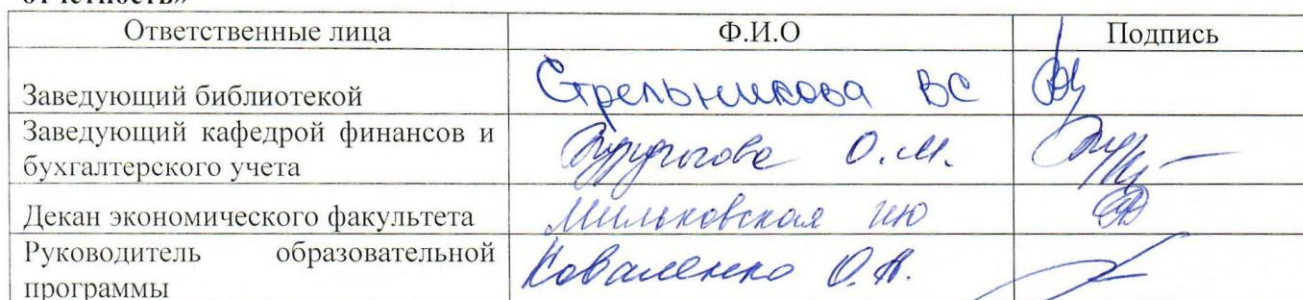 отчетность»
Ответственные лица Ф.И.О Подпись
Заведующий библиотекой Стрельникова ВС
Заведующий кафедрой финансов и
бухгалтерского учета О.М.
Декан экономического факультета Мильковская ИЮ
Руководитель образовательной
программы Коваленко О.А.